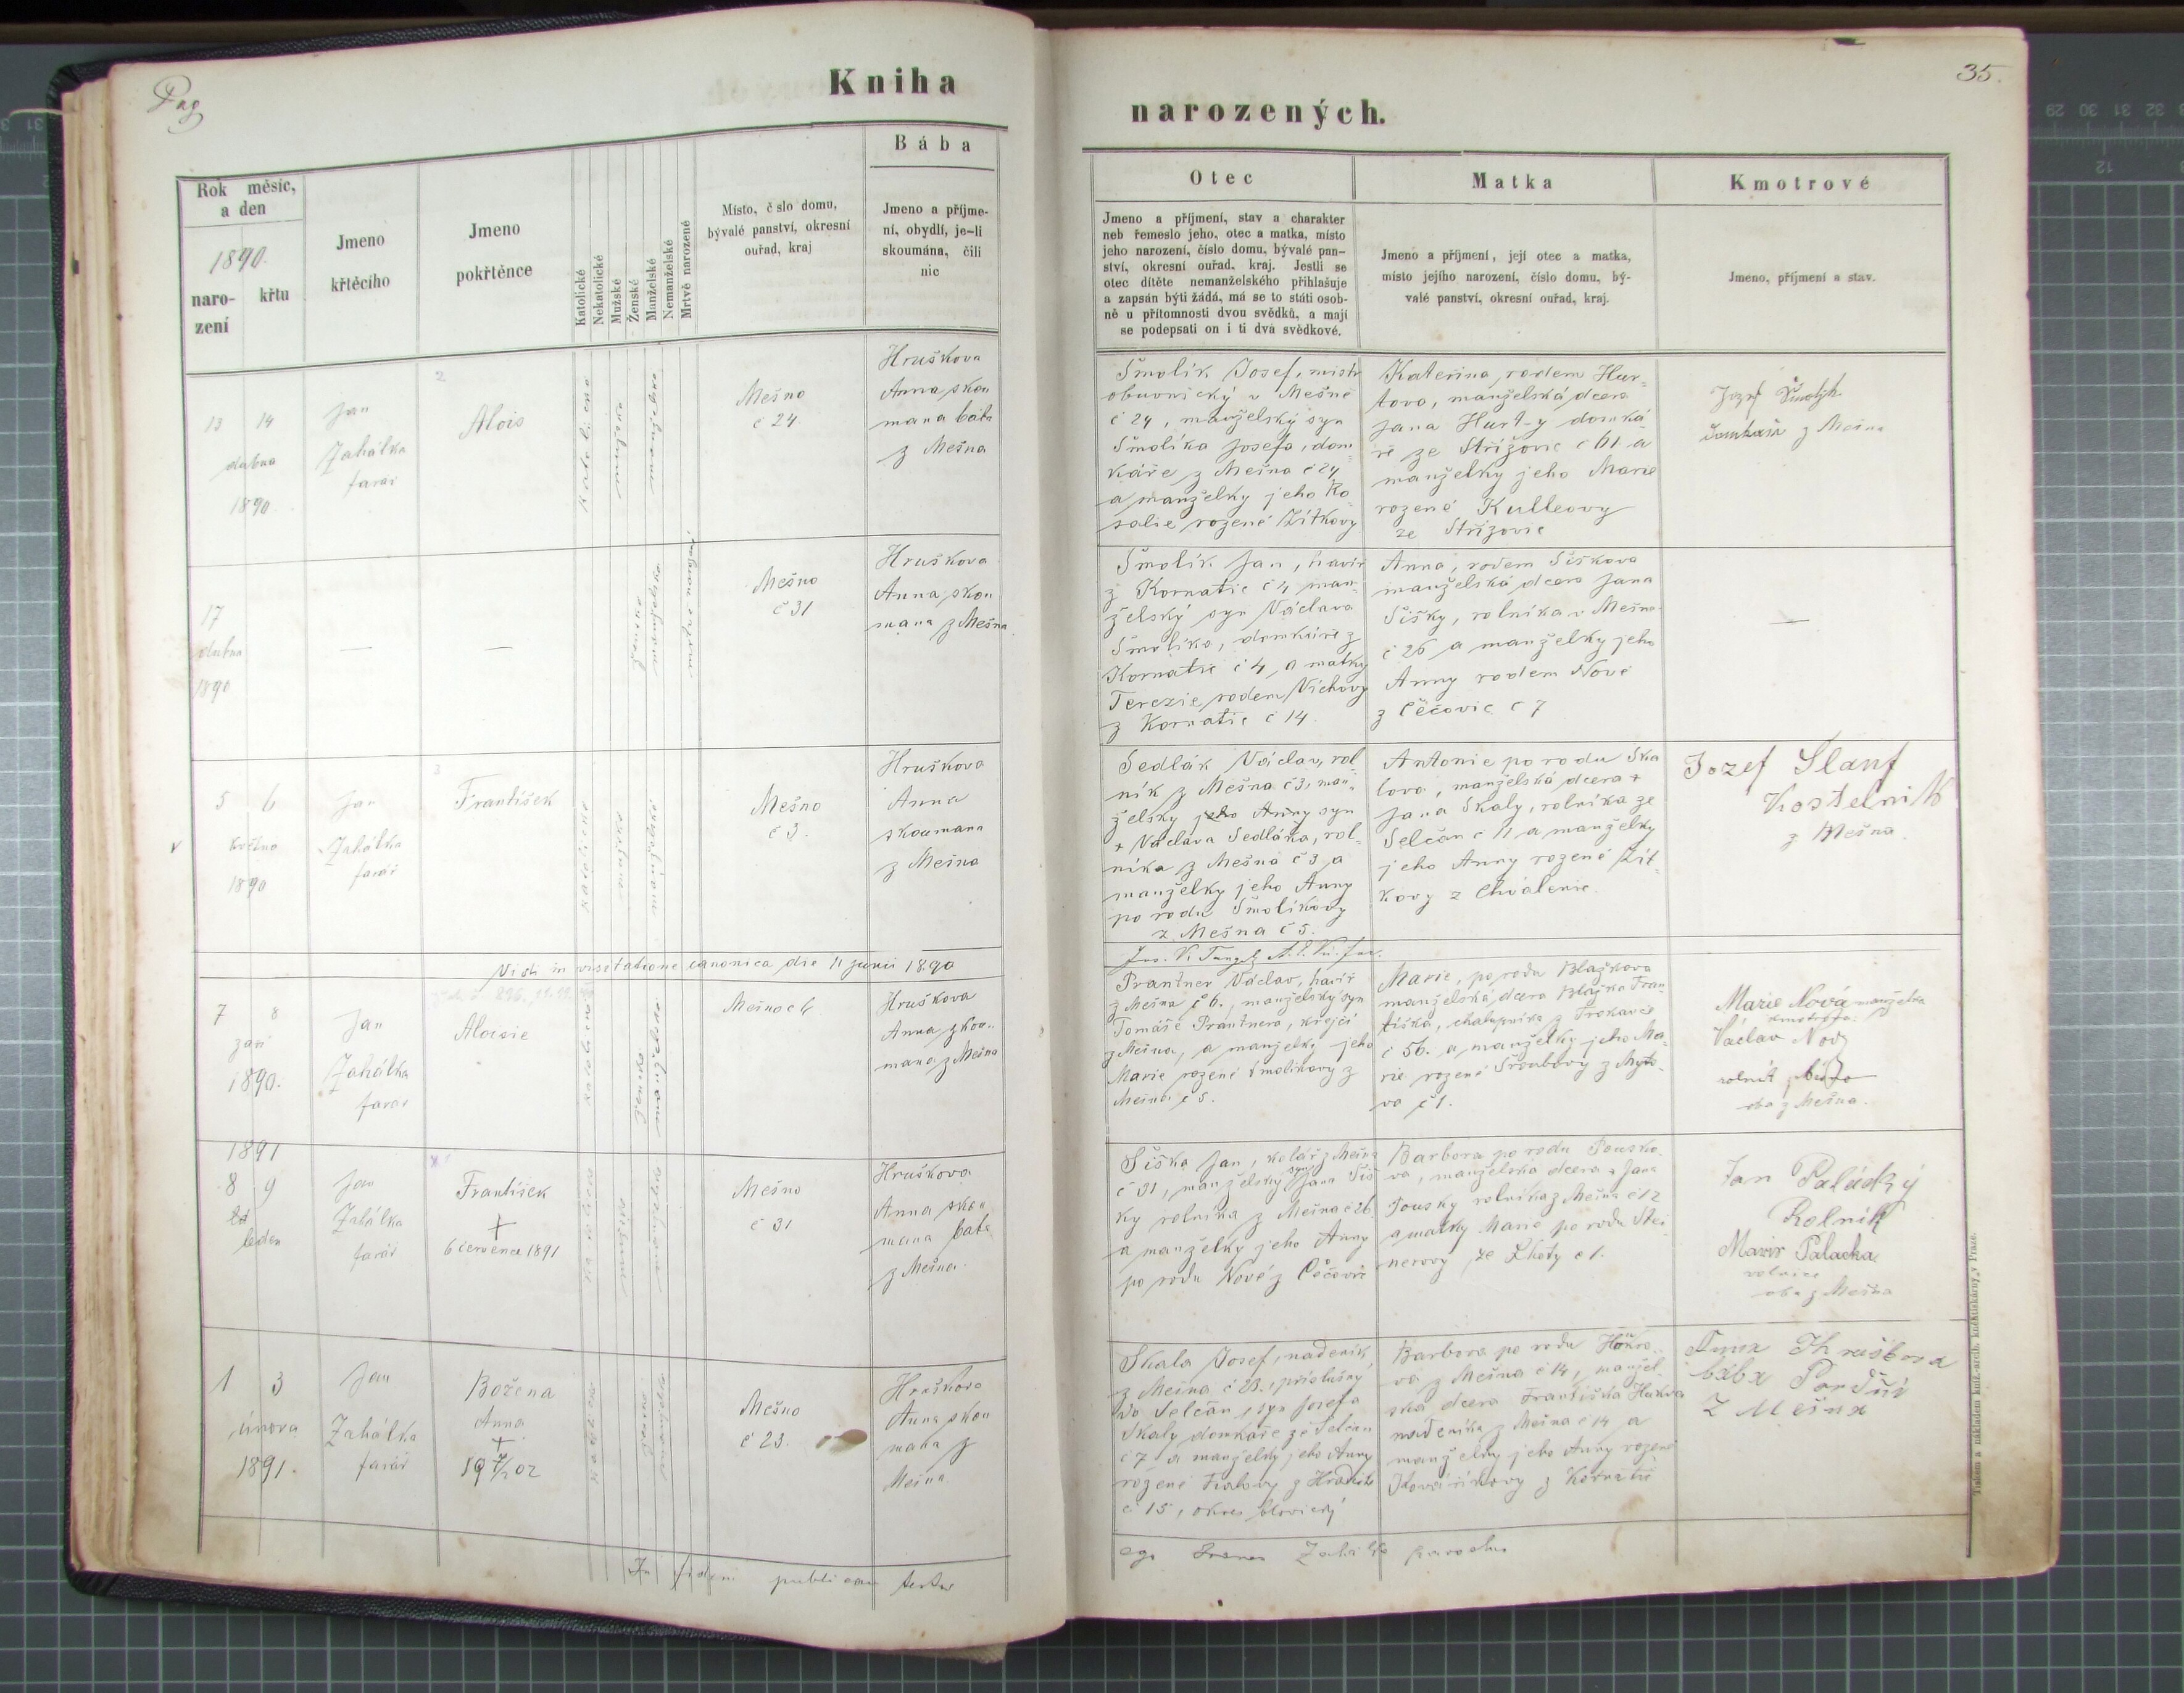 Pag
Kniha
narozených.
35.
Rok měsíc,
a den
1890.
naro-
zení
křtu
Jmeno
křtěcího
Jmeno
pokřtěnce
Katolické
Nekatolické
Mužské
Ženské
Manželské
Nemanželské
Mrtvě narozené
Místo, č slo domu,
bývalé panství, okresní
ouřad, kraj
Bába
Jmeno a příjme-
ní, obydlí, je-li
skoumána, čili
nic
Otec
Jmeno a příjmení, stav a charakter
neb řemeslo jeho, otec a matka, místo
jeho narození, číslo domu, bývalé pan-
ství, okresní ouřad, kraj. Jestli se
otec dítěte nemanželského přihlašuje
a zapsán býti žádá, má se to státi osob-
ně u přítomnosti dvou svědků, a mají
se podepsati on i ti dva svědkové.
Matka
Jmeno a příjmení, její otec a matka,
místo jejího narození, číslo domu, bý-
valé panství, okresní ouřad, kraj.
Kmotrové
Jmeno, příjmení a stav.
2
13 14
dubna
1890
Jan
Zahálka
farář
Alois
katolické
mužské
manželské
Mešno
č 24
Hruškova
Anna skou
mana bába
z Mešna
Šmolík Josef, mistr
obuvnický v Mešně
č 24, manželský syn
Šmolíka Josefa, dom-
káře z Mešna č 24
a manželky jeho Ro
salie rozené Zítkovy
Kateřina, rodem Hur-
tova, manželská dcera
Jana Hurty domká-
ře ze Střížovic č 61 a
manželky jeho Marie
rozené Kulleovy
ze Střížovic
Jozef Šmolik
domkař z Mešna
17
dubna
1890
—
—
ženské
manželské
mrtvě narozené
Mešno
č 31
Hruškova
Anna skou
mana z Mešna
Šmolík Jan, havíř
z Kornatic č 4 man-
želský syn Václava
Šmolíka, domkáře z
Kornatic č 4, a matky
Terezie rodem Víchovy
z Kornatic č 14.
Anna, rodem Šiškova
manželská dcera Jana
Šišky, rolníka v Mešně
č 26 a manželky jeho
Anny rodem Nové
z Čečovic č 7
—
3
5 6
května
1890
Jan
Zahálka
farář
František
katolické
mužské
manželské
Mešno
č 3.
Hruškova
Anna
skoumana
z Mešna
Sedlák Václav, rol-
ník z Mešna č 3, man-
želský jeho Anny syn
+ Václava Sedláka, rol-
níka z Mešna č 3 a
manželky jeho Anny
po rodu Šmolíkovy
z Mešna č 5.
Antonie po rodu Ska
lova, manželská dcera +
Jana Skaly, rolníka ze
Selčan č 11 a manželky
jeho Anny rozené Zít-
kovy z Chválenic.
Jozef Slanf
Kostelník
z Mešna.
Vidi in visitatione canonica die 11 junii 1890
7 8
září
1890.
Jan
Zahálka
farář
Aloisie
katolické
ženské
manželské
Mešno č 6
Hruškova
Anna skou-
mana z Mešna
Prantner Václav, havíř
z Mešna č 6., manželský syn
Tomáše Prantnera, krejčí
z Mešna, a manželky jeho
Marie rozené Šmolíkovy z
Mešna č 5.
Marie, po rodu Blažkova
manželská dcera Blažka Fran-
tiška, chalupníka z Trokavec
č 56. a manželky jeho Ma-
rie rozené Šroubovy z Myto-
va č 1.
Marie Nová manželka
kmotra
Václav Nový
rolník
oba z Mešna.
1891
8 9
leden
Jan
Zahálka
farář
František
+
6 července 1891
katolické
mužské
manželské
Mešno
č 31
Hruškova
Anna skou
mana bába
z Mešna
Šiška Jan, kolář z Mešna
č 31, manželský syn Jana Šiš
ky rolníka z Mešna č 26
a manželky jeho Anny
po rodu Nové z Čečovic
Barbora po rodu Pousko
va, manželská dcera + Jana
Pousky rolníka z Mešna č 12
a matky Marie po rodu Stei-
nerovy ze Lhoty č 1.
Jan Palácký
Rolník
Marie Palacka
rolnice
oba z Mešna
1 3
února
1891.
Jan
Zahálka
farář
Božena
Anna
+
katolické
ženské
manželské
Mešno
č 23.
Hruškova
Anna skou
mana z
Mešna
Skala Josef, nadeník
z Mešna č 23., příslušný
do Selčan, syn Josefa
Skaly domkáře ze Selčan
č 7 a manželky jeho Anny
rozené Fialovy z Hradiště
č 15, okres blovický
Barbora po rodu Honzo-
va z Mešna č 14, manžel-
ská dcera Františka
nadeníka z Mešna č 14 a
manželky jeho Anny rozené
Kovaříkovy z Kornatic
Anna Hruškova
bába
Z Mešna
In fidem publicam testor
ego Joannes Zahálka parochus
Tiskem a nákladem kníž.-arcib. knihtiskárny v Praze.